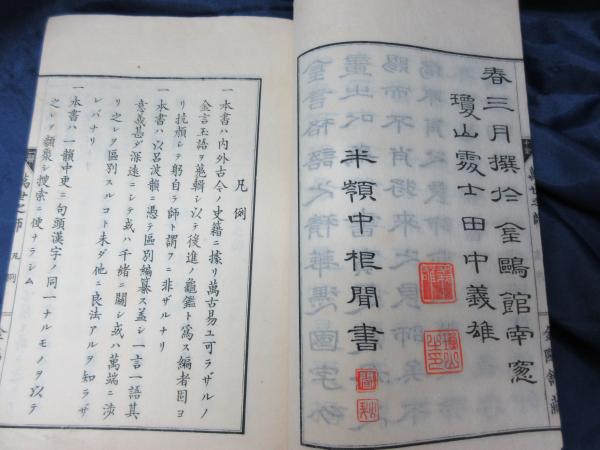 春三月撰於金鷗館南窓
瓊山處士田中義雄
半嶺中根聞書
凡例
一本書ハ内外古今ノ史籍ニ據リ萬古易ユ可ラザルノ
金言玉語ヲ蒐輯シ以テ後進ノ龜鑑ト爲ス編者固ヨ
リ抗顔シテ躬自ラ師ト謂フニ非ザルナリ
一本書ハ以呂波韻ニ憑テ區別編纂ス蓋シ一言一語其
意義甚ダ深遠ニシテ或ハ千緒ニ關シ或ハ萬端ニ渉
リ之レヲ區別スルコト未ダ他ニ良法アルヲ知ラザ
レバナリ
一本書ハ一韻中更ニ句頭漢字ノ同一ナルモノヲ以テ
之レヲ類聚シ搜索ニ便ナラシム
萬世之師
凡例